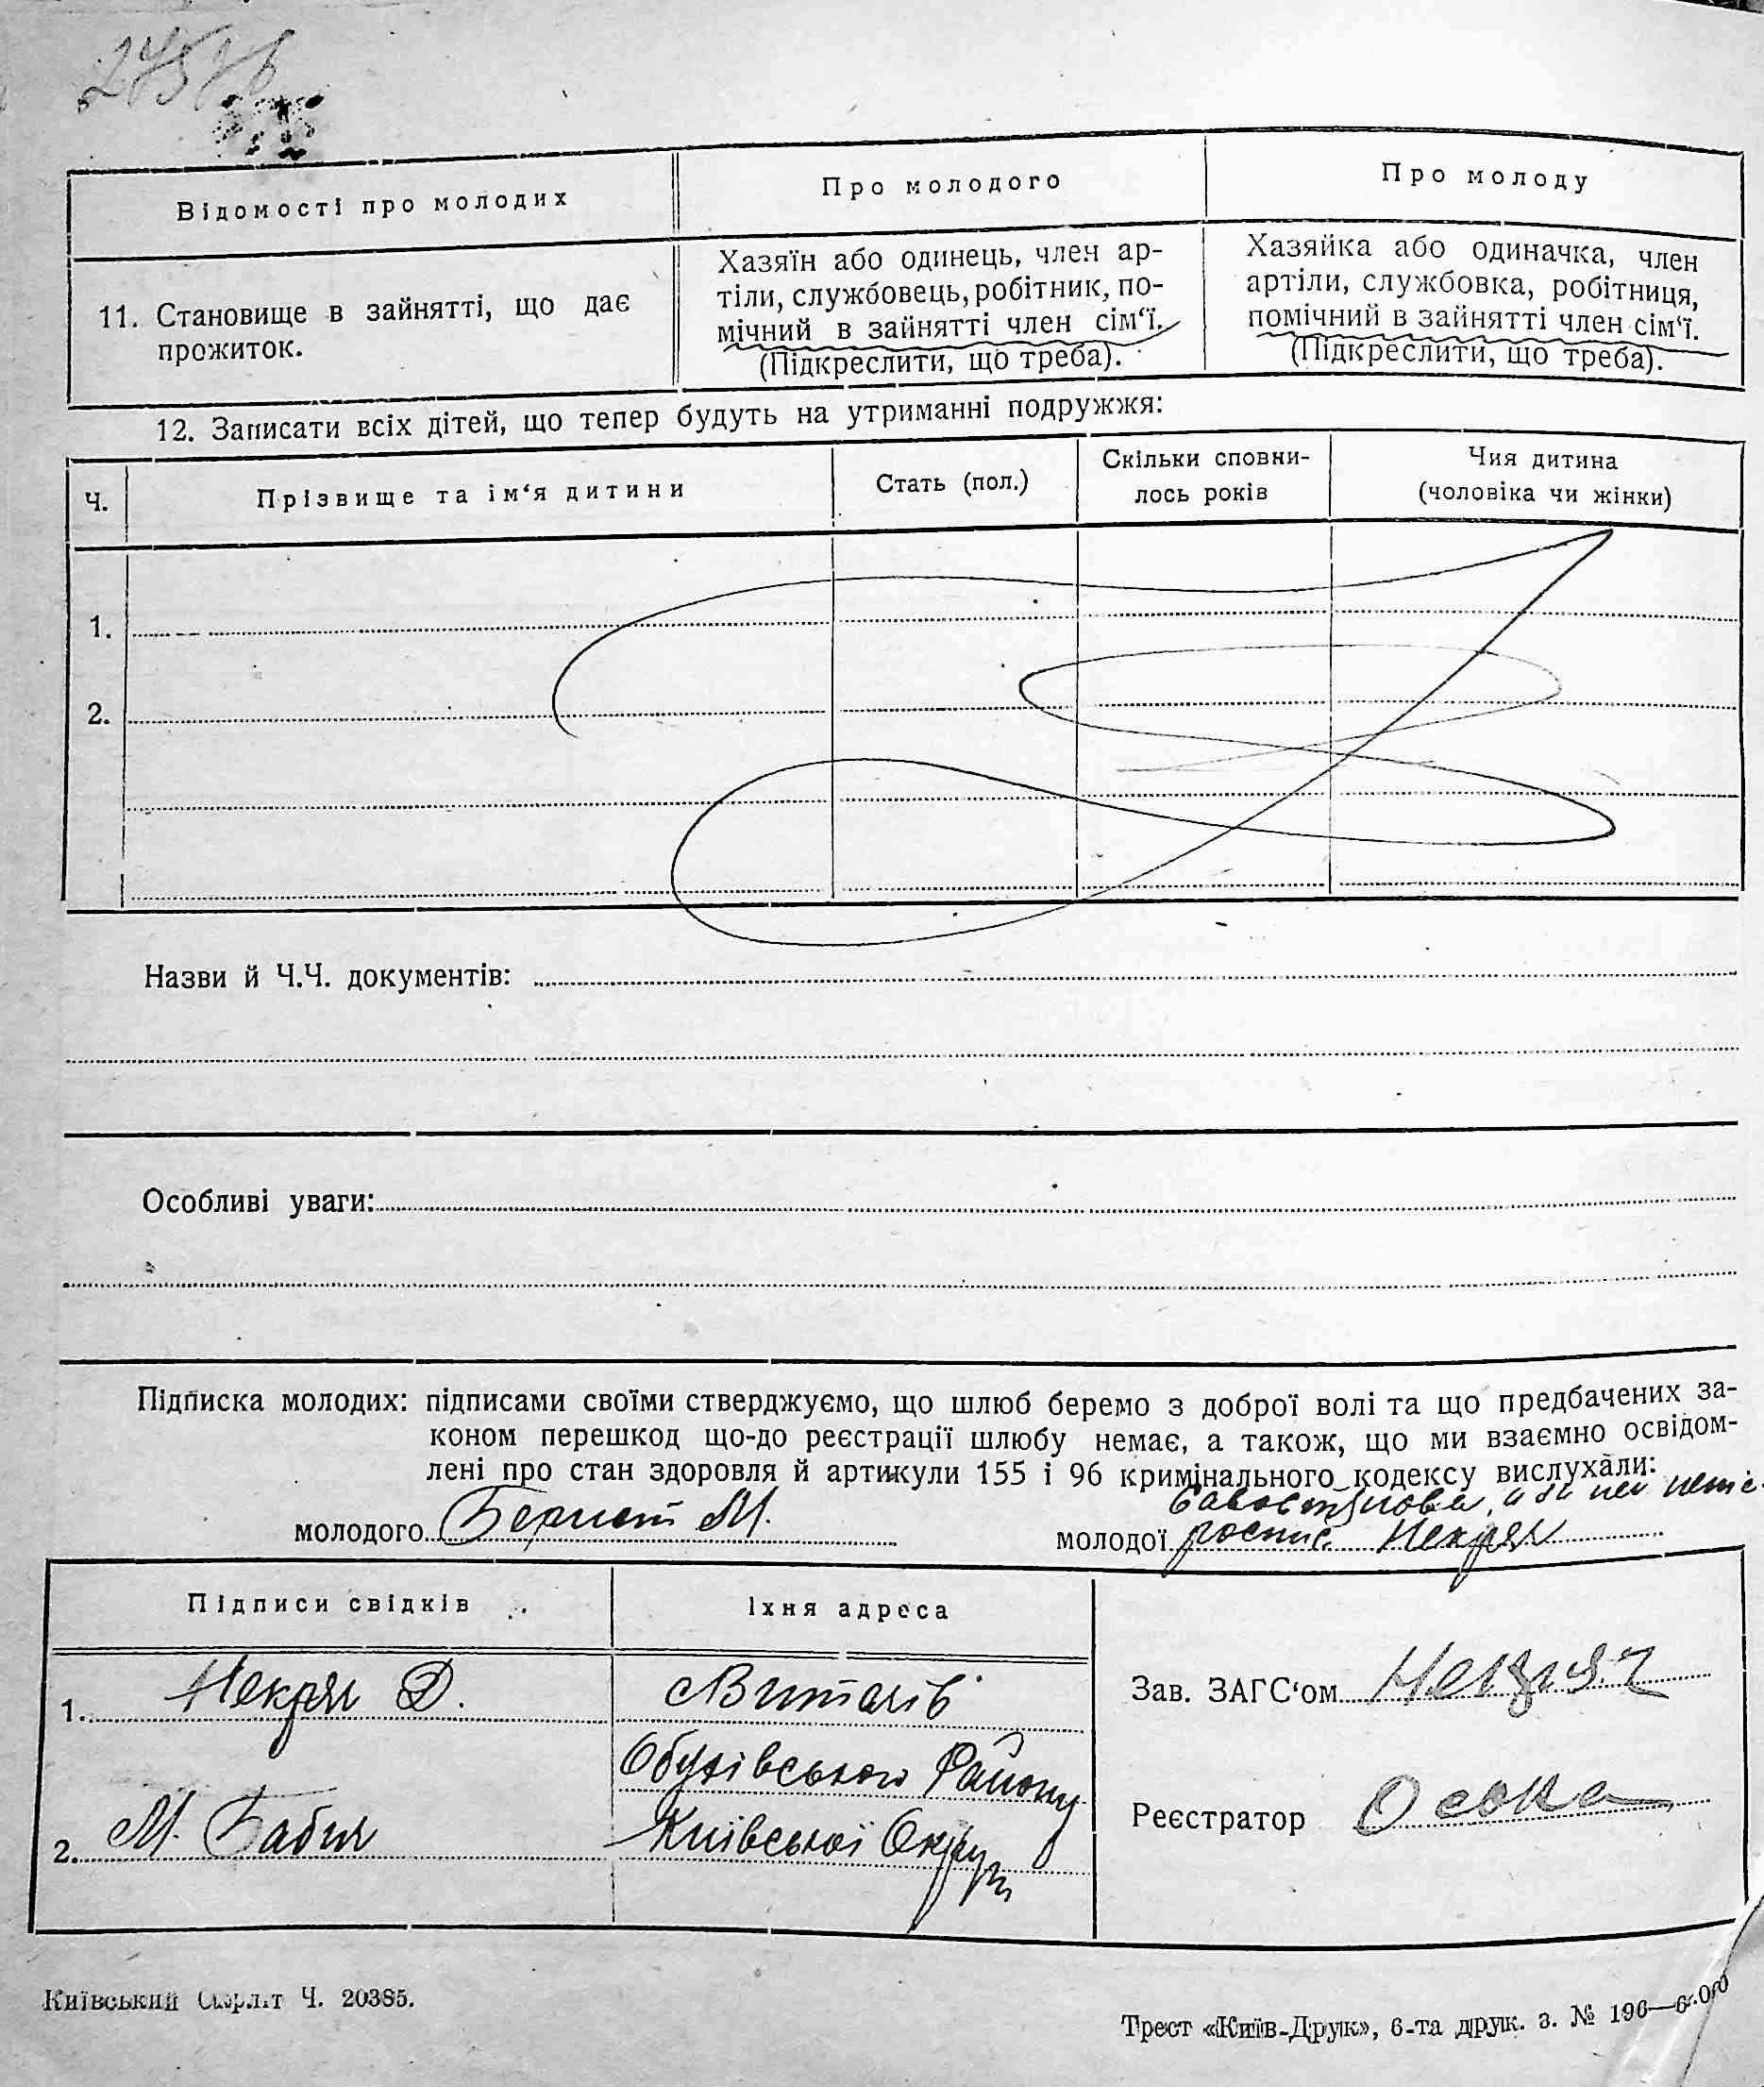 Відомості про молодих
Про молодого
Про молоду
11. Становище в зайнятті, що дає
прожиток.
Хазяїн або одинець, член ар-
тіли, службовець, робітник, по-
мічний в зайнятті член сім‘ї.
(Підкреслити, що треба).
Хазяйка або одиначка, член
артіли, службовка, робітниця,
помічний в зайнятті член сім‘ї.
(Підкреслити, що треба).
12. Записати всіх дітей, що тепер будуть на утриманні подружжя:
Ч.
Прізвище та ім‘я дитини
Стать (пол.)
Скільки сповни-
лось років
Чия дитина
(чоловіка чи жінки)
1.
2.
Назви й Ч.Ч. документів:
Особливі уваги:
Підписка молодих: підписами своїми стверджуємо, що шлюб беремо з доброї волі та що предбачених за-
коном перешкод що-до реєстрації шлюбу немає, а також, що ми взаємно освідом-
лені про стан здоровля й артикули 155 і 96 кримінального кодексу вислухали:
молодого
М.
молодої
Некря
Підписи свідків
Їхня адреса
1. Некря Д.
Витачів
Обухівського Району
2. М. Бабич
Київської Округи
Зав. ЗАГС‘ом
Реєстратор Осока
Київський Ч. 20385.
Трест «Київ-Друк», 6-та друк. з. № 196